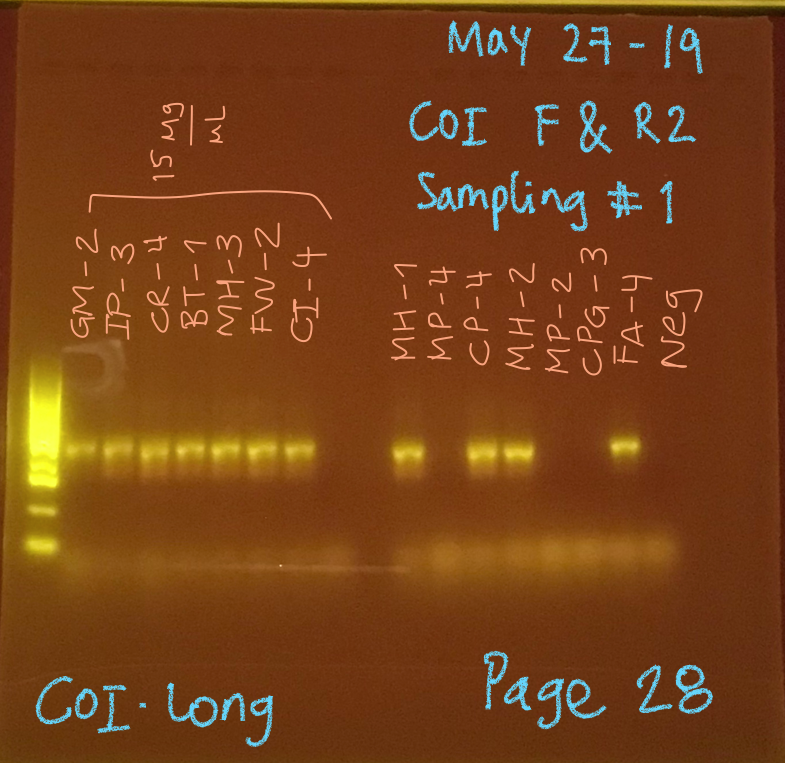 May 27-19
COI F & R2
Sampling #1
15 Mg/mL
GM-2
IP-3
CR-4
BT-1
MH-3
FW-2
CI-4
MH-1
MP-4
CP-4
MH-2
MP-2
CPG-3
FA-4
Neg
COI-Long
Page 28